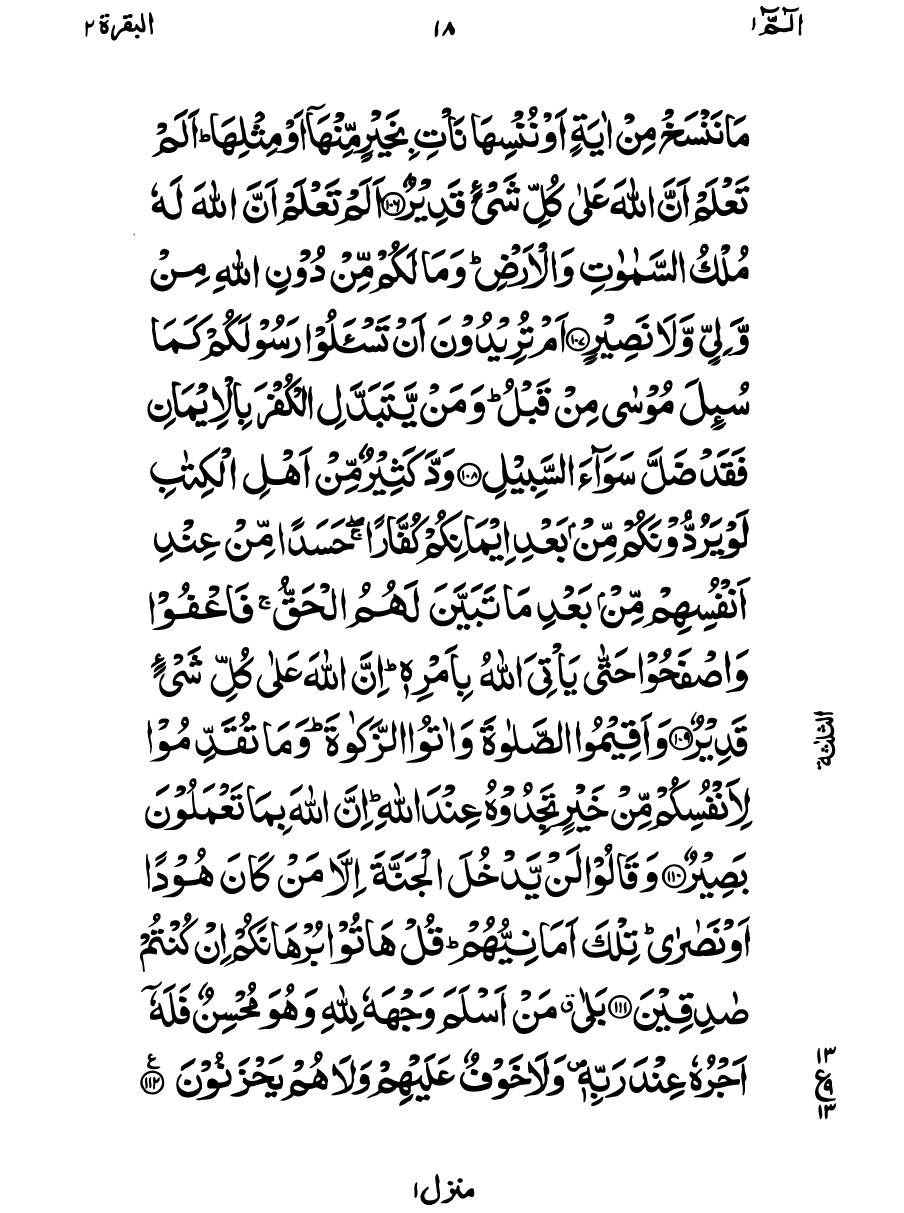 الٓمّٓ ۱ ۱۸ البقرة ۲
مَا نَنْسَخْ مِنْ اٰیَةٍ اَوْ نُنْسِهَا نَاْتِ بِخَیْرٍ مِّنْهَاۤ اَوْ مِثْلِهَا ؕ اَلَمْ
تَعْلَمْ اَنَّ اللّٰهَ عَلٰی کُلِّ شَیْءٍ قَدِیْرٌ ﴿۱۰۶﴾ اَلَمْ تَعْلَمْ اَنَّ اللّٰهَ لَهٗ
مُلْكُ السَّمٰوٰتِ وَالْاَرْضِ ؕ وَمَا لَکُمْ مِّنْ دُوْنِ اللّٰهِ مِنْ
وَّلِیٍّ وَّلَا نَصِیْرٍ ﴿۱۰۷﴾ اَمْ تُرِیْدُوْنَ اَنْ تَسْـَٔلُوْا رَسُوْلَکُمْ کَمَا
سُىِٕلَ مُوْسٰی مِنْ قَبْلُ ؕ وَمَنْ یَّتَبَدَّلِ الْکُفْرَ بِالْاِیْمَانِ
فَقَدْ ضَلَّ سَوَآءَ السَّبِیْلِ ﴿۱۰۸﴾ وَدَّ کَثِیْرٌ مِّنْ اَهْلِ الْکِتٰبِ
لَوْ یَرُدُّوْنَکُمْ مِّنْۢ بَعْدِ اِیْمَانِکُمْ کُفَّارًا ۖۚ حَسَدًا مِّنْ عِنْدِ
اَنْفُسِهِمْ مِّنْۢ بَعْدِ مَا تَبَیَّنَ لَهُمُ الْحَقُّ ۚ فَاعْفُوْا
وَاصْفَحُوْا حَتّٰی یَاْتِیَ اللّٰهُ بِاَمْرِهٖ ؕ اِنَّ اللّٰهَ عَلٰی کُلِّ شَیْءٍ
قَدِیْرٌ ﴿۱۰۹﴾ وَاَقِیْمُوا الصَّلٰوةَ وَاٰتُوا الزَّکٰوةَ ؕ وَمَا تُقَدِّمُوْا
الثلثة
لِاَنْفُسِکُمْ مِّنْ خَیْرٍ تَجِدُوْهُ عِنْدَ اللّٰهِ ؕ اِنَّ اللّٰهَ بِمَا تَعْمَلُوْنَ
بَصِیْرٌ ﴿۱۱۰﴾ وَقَالُوْا لَنْ یَّدْخُلَ الْجَنَّةَ اِلَّا مَنْ کَانَ هُوْدًا
اَوْ نَصٰرٰی ؕ تِلْكَ اَمَانِیُّهُمْ ؕ قُلْ هَاتُوْا بُرْهَانَکُمْ اِنْ کُنْتُمْ
صٰدِقِیْنَ ﴿۱۱۱﴾ بَلٰی ۗ مَنْ اَسْلَمَ وَجْهَهٗ لِلّٰهِ وَهُوَ مُحْسِنٌ فَلَهٗۤ
اَجْرُهٗ عِنْدَ رَبِّهٖ ۪ وَلَا خَوْفٌ عَلَیْهِمْ وَلَا هُمْ یَحْزَنُوْنَ ﴿۱۱۲﴾ ع
۱۳
ع ۹
۱۳
منزل ۱